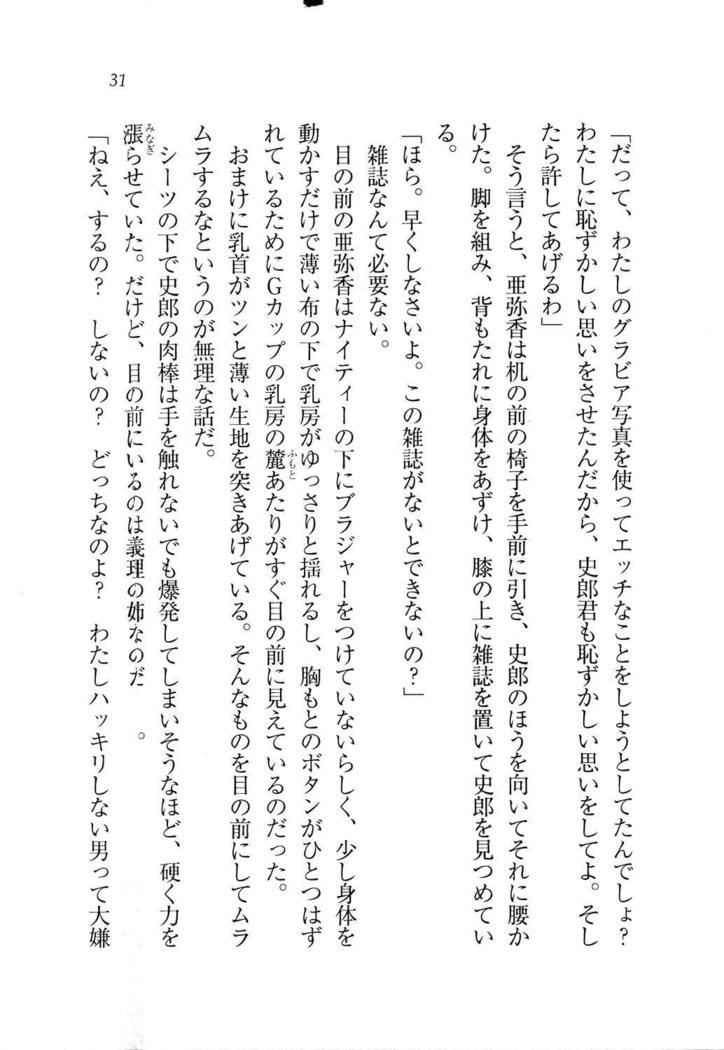 31
「だって、わたしのグラビア写真を使ってエッチなことをしようとしてたんでしょ?
わたしに恥ずかしい思いをさせたんだから、史郎君も恥ずかしい思いをしてよ。そし
たら許してあげるわ」
そう言うと、亜弥香は机の前の椅子を手前に引き、史郎のほうを向いてそれに腰か
けた。脚を組み、背もたれに身体をあずけ、膝の上に雑誌を置いて史郎を見つめてい
る。
「ほら。早くしなさいよ。この雑誌がないとできないの?」
雑誌なんて必要ない。
目の前の亜弥香はナイティーの下にブラジャーをつけていないらしく、少し身体を
動かすだけで薄い布の下で乳房がゆっさりと揺れるし、胸もとのボタンがひとつはず
れているためにGカップの乳房の麓あたりがすぐ目の前に見えているのだった。
おまけに乳首がツンと薄い生地を突きあげている。そんなものを目の前にしてムラ
ムラするなというのが無理な話だ。
シーツの下で史郎の肉棒は手を触れないでも爆発してしまいそうなほど、硬く力を
漲らせていた。だけど、目の前にいるのは義理の姉なのだ。
「ねえ、するの? しないの? どっちなのよ? わたしハッキリしない男って大嫌